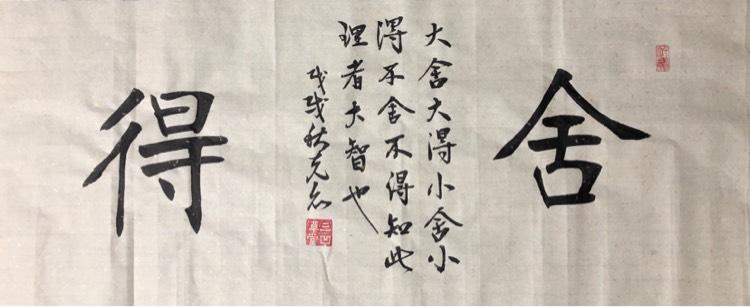 舍
大舍大得小舍小
得不舍不得知此
理者大智也
戊戌秋克
得